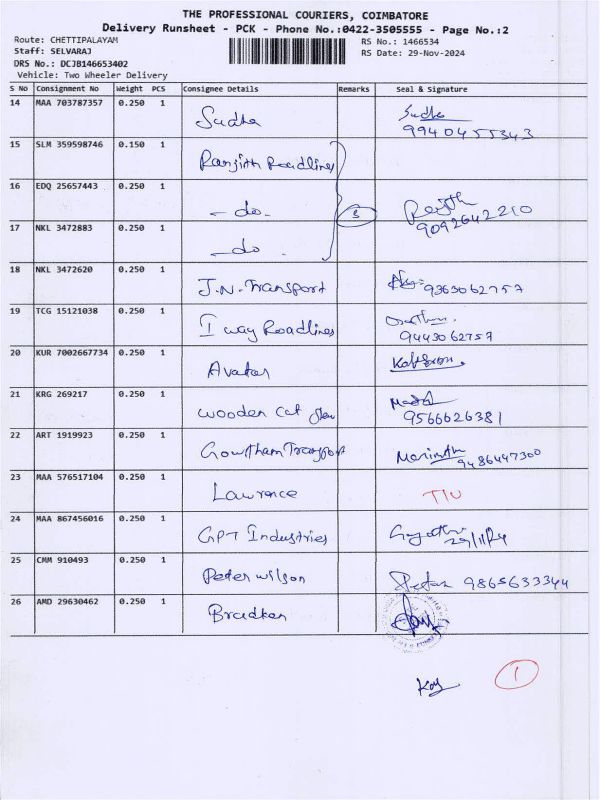 THE PROFESSIONAL COURIERS, COIMBATORE
Delivery Runsheet - PCK - Phone No.:0422-3505555 - Page No.:2
Route: CHETTIPALAYAM RS No.: 1466534
Staff: SELVARAJ RS Date: 29-Nov-2024
DRS No.: DCJB146653402
Vehicle: Two Wheeler Delivery
S No Consignment No Weight PCS Consignee Details Remarks Seal & Signature
14 MAA 703787357 0.250 1 Sudha Sudha
9940455343
15 SLM 359598746 0.150 1 Ranjith Roadlines
16 EDQ 25657443 0.250 1 - do - 3
9092642210
17 NKL 3472883 0.250 1 - do -
18 NKL 3472620 0.250 1 J.N. Transport 9363062757
19 TCG 15121038 0.250 1 I way Roadlines
9443062757
20 KUR 7002667734 0.250 1 Avatar
21 KRG 269217 0.250 1 wooden cat
9566626381
22 ART 1919923 0.250 1 Gowtham Transport
9486447300
23 MAA 576517104 0.250 1 Lawrence
24 MAA 867456016 0.250 1 GPT Industries Gayathri
29/11/24
25 CMM 910493 0.250 1 Peter wilson Peter 9865633344
26 AMD 29630462 0.250 1
1